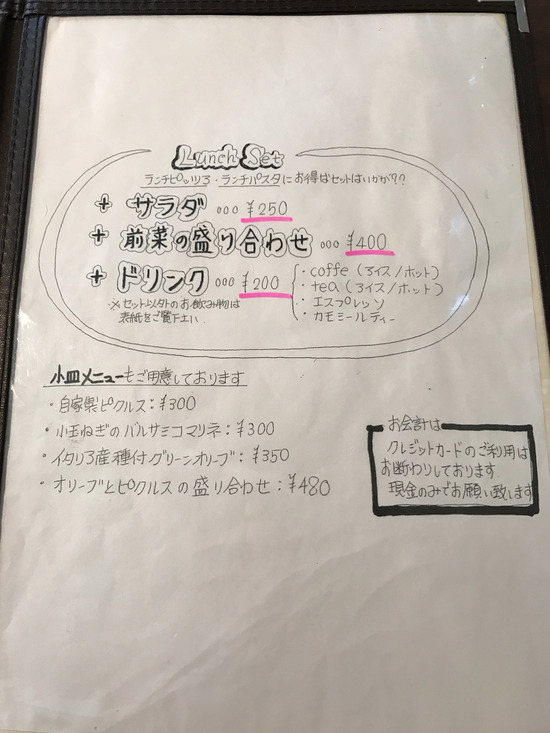 Lunch Set
ランチピッツァ・ランチパスタにお得なセットはいかが??
+ サラダ 。。。 ¥250
+ 前菜の盛り合わせ 。。。 ¥400
+ ドリンク 。。。 ¥200
・coffe (アイス/ホット)
・tea (アイス/ホット)
・エスプレッソ
・カモミールティー
※セット以外のお飲み物は
表紙をご覧下さい.
小皿メニューもご用意しております
・自家製ピクルス:¥300
・小玉ねぎのバルサミコマリネ:¥300
・イタリア産種付グリーンオリーブ:¥350
・オリーブとピクルスの盛り合わせ:¥480
お会計は
クレジットカードのご利用は
お断わりしております
現金のみでお願い致します